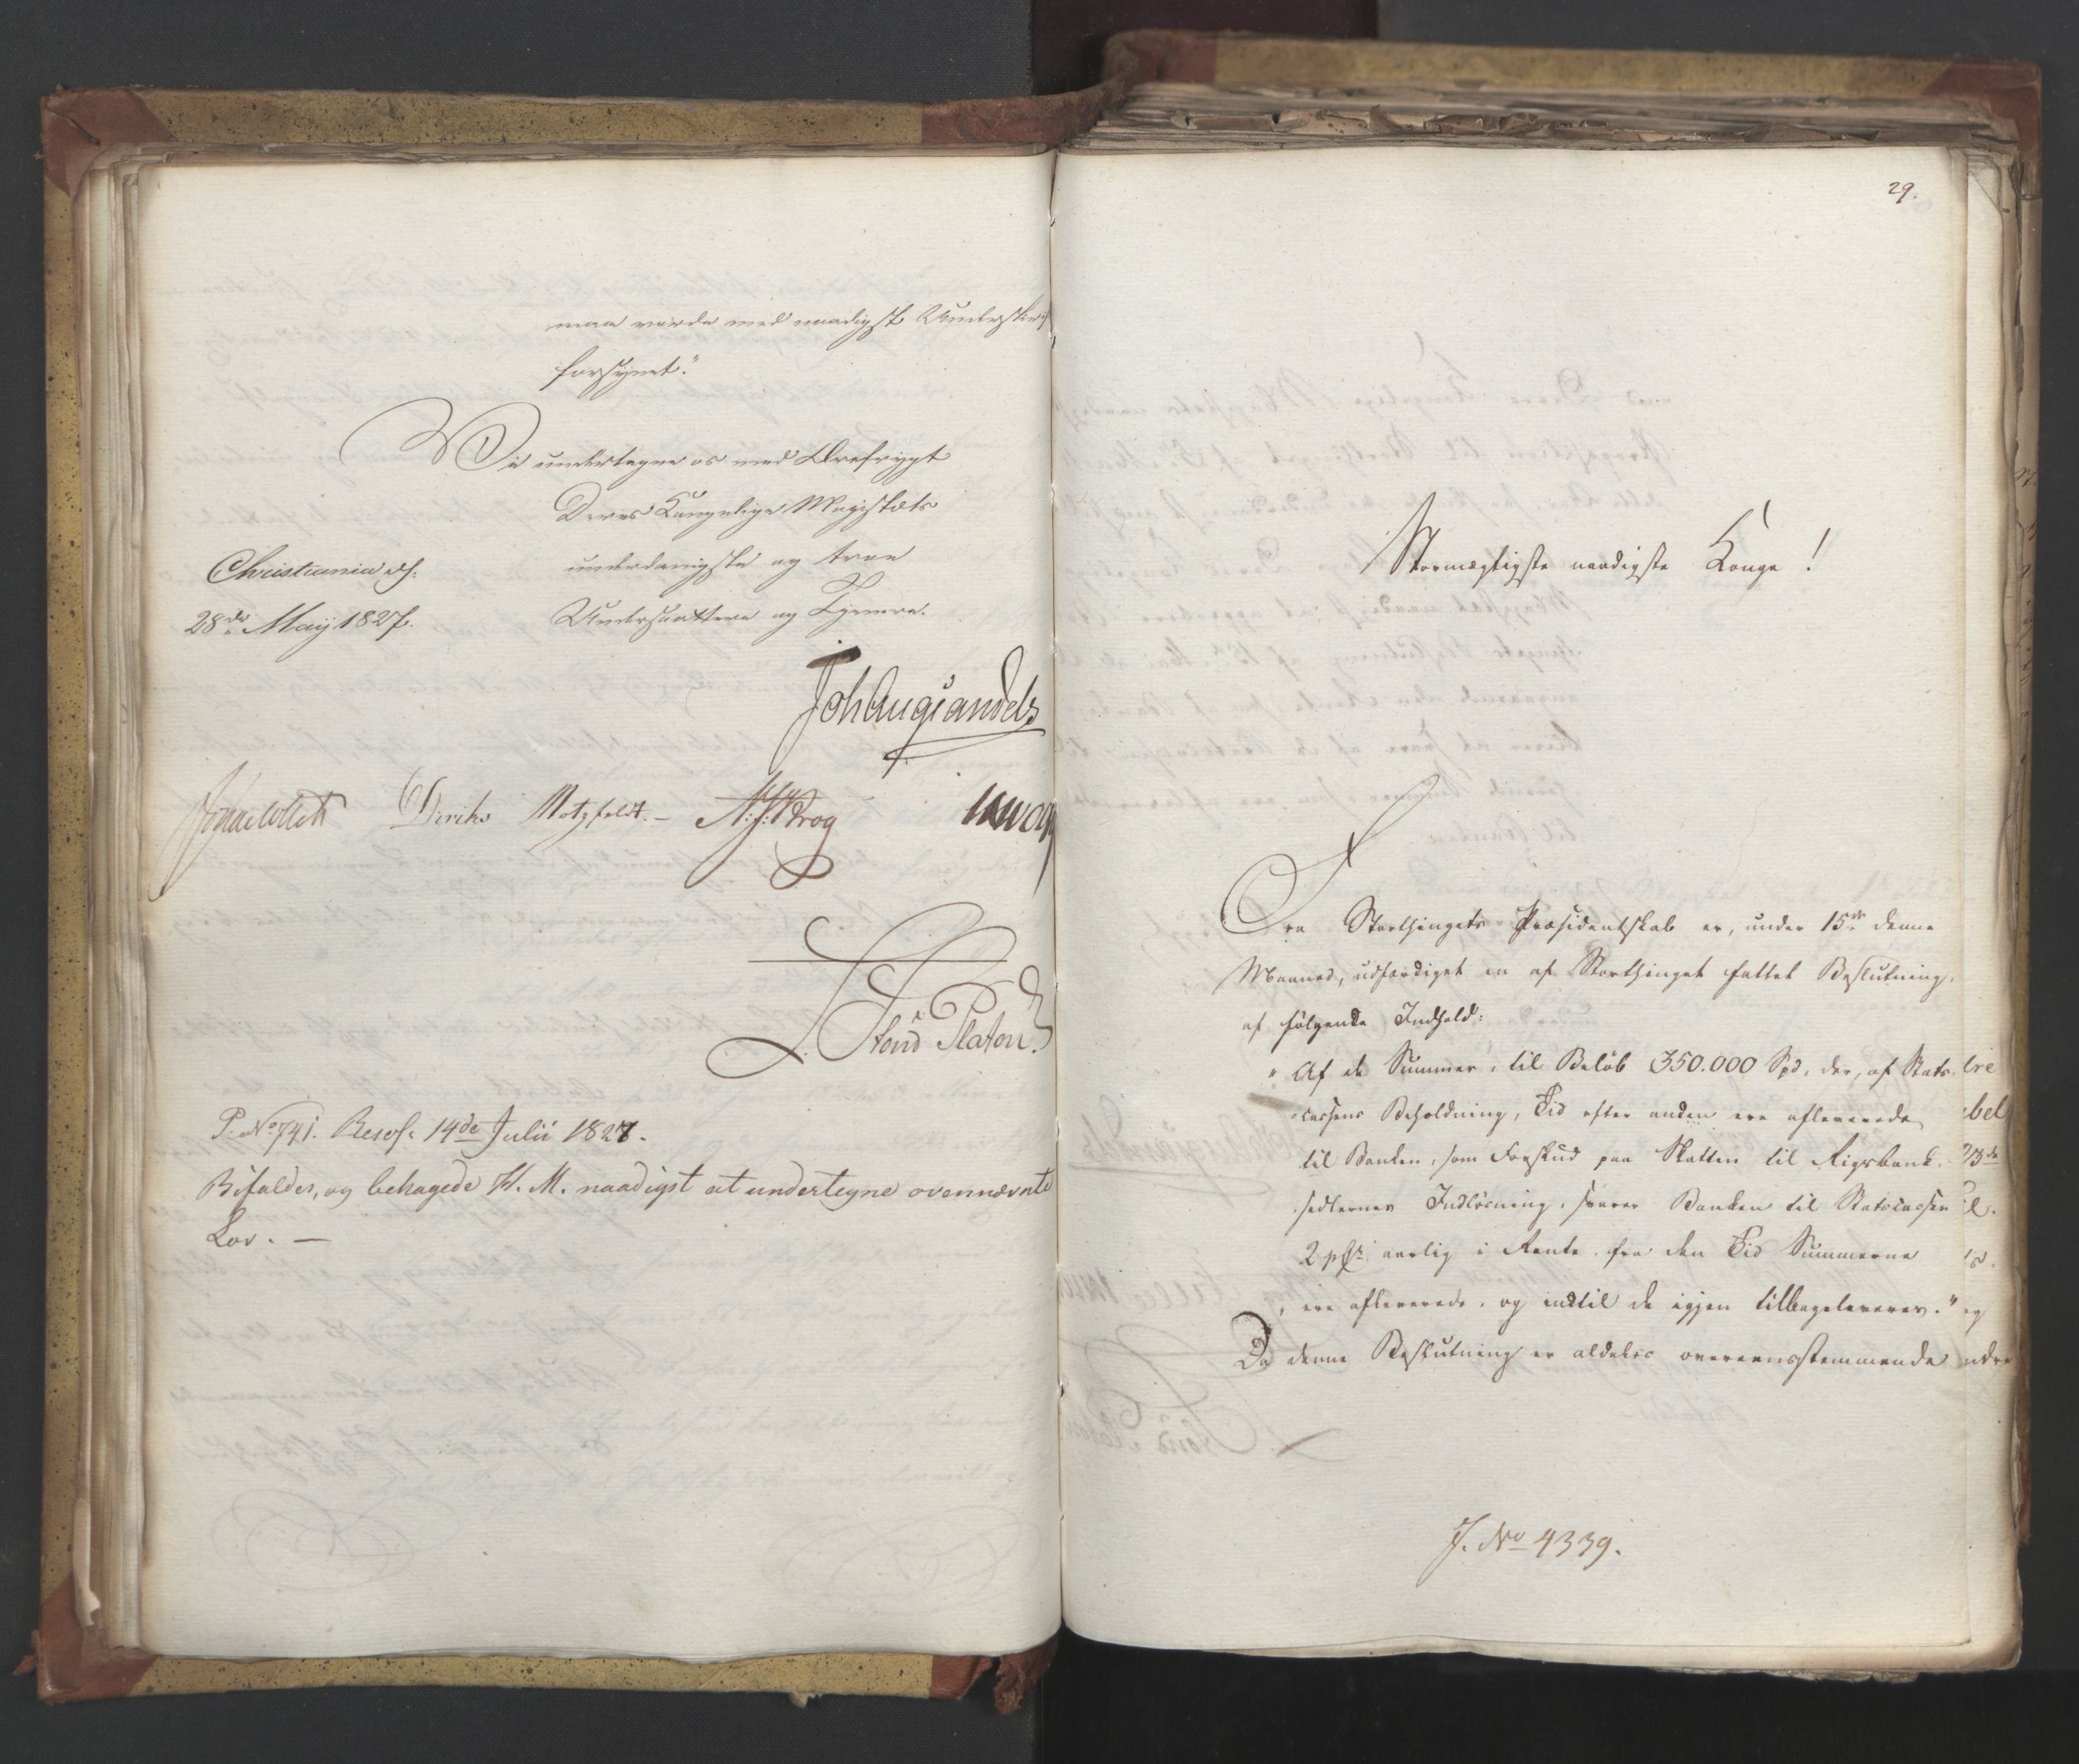 maa vorde med naadigst Underskrif
forsynet."
Vi undertegne os med Ærefrygt
Deres Kongelige Majestæts
underdanigste og troe
Undersaattere og Tjenere.
Christiania d.
28de Maij 1827.
Joh Aug Sandels
J Collett Diriks Motzfeldt. — A. J. Krog
Stoud Platou.
P. No 741. Resol: 14de Julii 1827.
Bifaldes, og behagede H. M. naadigst at undertegne ovennævnte
Lov. —
29.
Stormægtigste naadigste Konge!
Fra Storthingets Præsidentskab er, under 15de denne
Maaned, udfærdiget en af Storthinget fattet Beslutning,
af følgende Indhold:
"Af de Summer, til Beløb 350.000 Spd, der, af Stats-
cassens Beholdning, Tid efter anden ere afleverede
til Banken, som Forskud paa Skatten til Rigsbank-
sedlernes Indløsning, svarer Banken til Statscassen
2 pCt aarlig i Rente fra den Tid Summerne
ere afleverede, og indtil de igjen tilbageleveres."
Da denne Beslutning er aldeles overeensstemmende
J. No 4339.